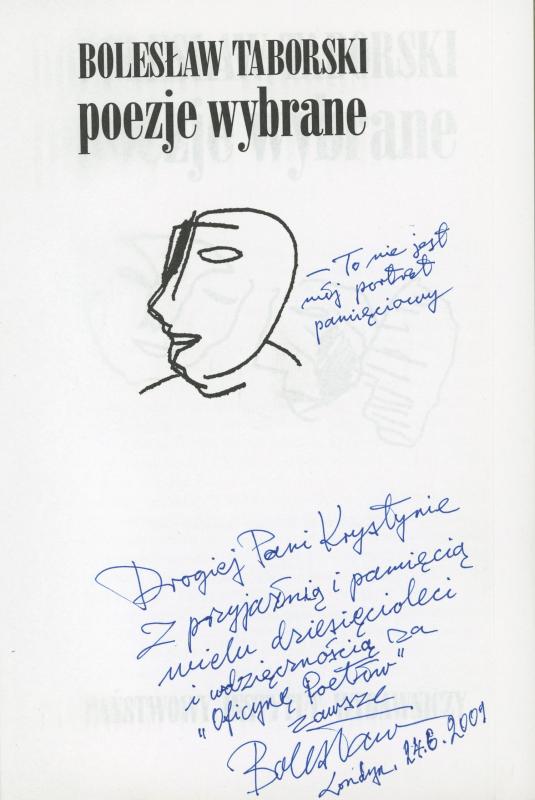 BOLESŁAW TABORSKI
poezje wybrane
– To nie jest
mój portret
pamięciowy
Drogiej Pani Krystynie
z przyjaźnią i pamięcią
wielu dziesięcioleci
i wdzięcznością za
"Oficynę Poetów"
zawsze
Bolesław
Londyn, 24.6.2009
PAŃSTWOWY INSTYTUT WYDAWNICZY